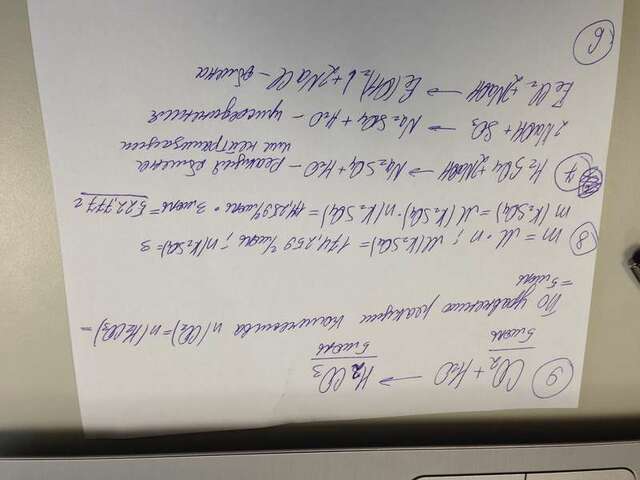 9) CO₂ + H₂O → H₂CO₃
5 моль 5 моль
По уравнению реакции количества n(CO₂) = n(H₂CO₃) =
= 5 моль
8) m = M · n ; M(K₂SO₄) = 174,259 г/моль ; n(K₂SO₄) = 3
m(K₂SO₄) = M(K₂SO₄) · n(K₂SO₄) = 174,259 г/моль · 3 моль = 522,777 г
7) H₂SO₄ + 2NaOH → Na₂SO₄ + H₂O – Реакция обмена
или нейтрализации
2NaOH + SO₃ → Na₂SO₄ + H₂O – присоединения
FeCl₂ + 2NaOH → Fe(OH)₂↓ + 2NaCl – обмена
6)